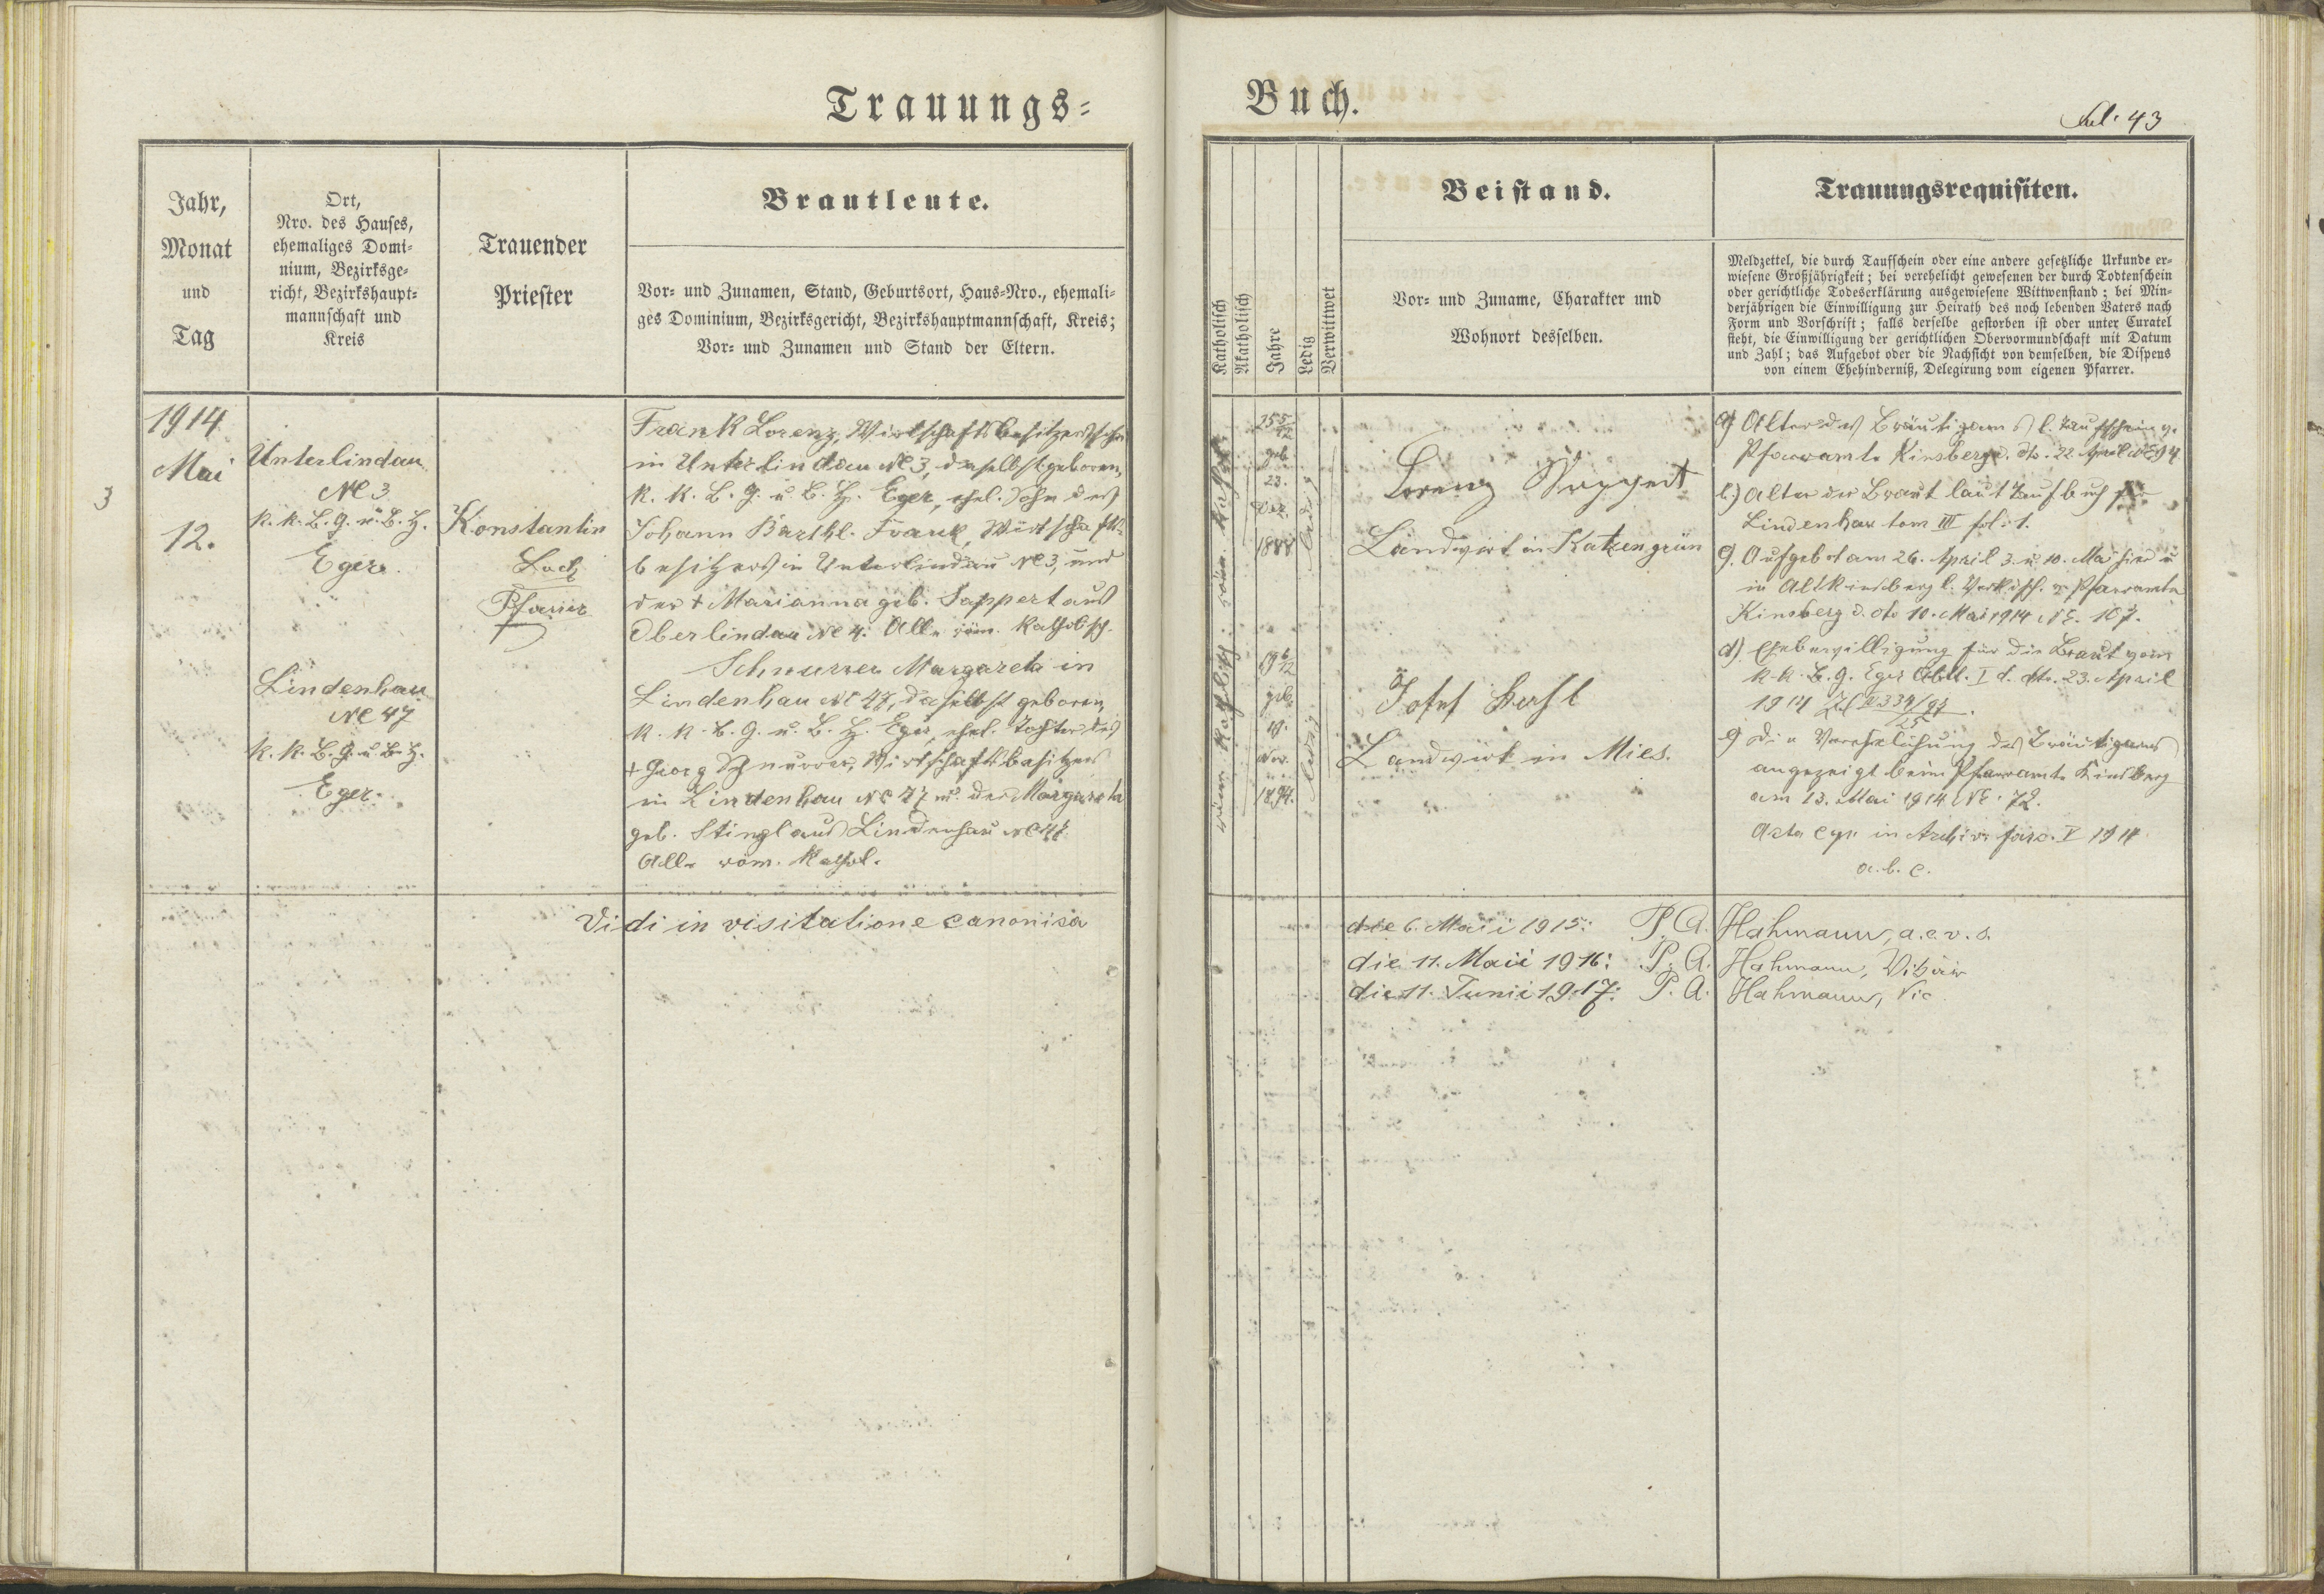 Trauungs-
Buch.
Fol. 43
Jahr,
Monat
und
Tag
Ort,
Nro. des Hauses,
ehemaliges Domi-
nium, Bezirksge-
richt, Bezirkshaupt-
mannschaft und
Kreis
Trauender
Priester
Brautleute.
Vor- und Zunamen, Stand, Geburtsort, Haus-Nro., ehemali-
ges Dominium, Bezirksgericht, Bezirkshauptmannschaft, Kreis;
Vor- und Zunamen und Stand der Eltern.
Katholisch
Akatholisch
Jahre
Ledig
Verwittwet
Beistand.
Vor- und Zuname, Charakter und
Wohnort desselben.
Trauungsrequisiten.
Meldzettel, die durch Taufschein oder eine andere gesetzliche Urkunde er-
wiesene Großjährigkeit; bei verehelicht gewesenen der durch Todtenschein
oder gerichtliche Todeserklärung ausgewiesene Wittwenstand; bei Min-
derjährigen die Einwilligung zur Heirath des noch lebenden Vaters nach
Form und Vorschrift; falls derselbe gestorben ist oder unter Curatel
steht, die Einwilligung der gerichtlichen Obervormundschaft mit Datum
und Zahl; das Aufgebot oder die Nachsicht von demselben, die Dispens
von einem Ehehinderniß, Delegirung vom eigenen Pfarrer.
3
1914
Mai
12.
Unterlindau
No 3
k. k. B. G. u. B. H.
Eger.
Lindenhau
No 47
k. k. B. G. u. B. H.
Eger.
Konstantin
Pfarrer
Frank Lorenz, Wirtschaftsbesitzerssohn
in Unterlindau No 3, daselbst geboren,
k. k. B. G. u. B. H. Eger, ehel. Sohn des
Johann Barthl. Frank, Wirtschafts-
besitzers in Unterlindau No 3, und
der + Marianna geb. Sappert aus
Oberlindau No 4. Alle röm. katholisch.
Schnurrer Margareta in
Lindenhau No 47, daselbst geboren,
k. k. B. G. u. B. H. Eger, ehel. Tochter des
+ Georg Schnurrer, Wirtschaftsbesitzers
in Lindenhau No 47 u. der Margareta
geb. Stingl aus Lindenhau No
Alle röm. kathol.
röm. katholisch. röm. kathol.
25 5/12
geb.
23.
Dez.
1888
ledig
19 6/12
geb.
19.
Nov.
1894.
ledig.
Lorenz Sappert
Landwirt in Katzengrün
Josef
Landwirt in Mies.
a) Alter des Bräutigams l. Taufschein v.
Pfarramte Kinsberg d. dto. 22. April NE 94
b.) Alter der Braut laut Taufbuch für
Lindenhau tom III fol. 1.
c). Aufgebot am 26. April 3. u. 10. Mai hier u
in Altkinsberg l. Verkdsch. v. Pfarramte
Kinsberg d. dto 10. Mai 1914 NE. 107.
d) Ehebewilligung für die Braut vom
k. k. B. G. Eger Abtl. I d. dto. 23. April
1914
e) Die Verehelichung des Bräutigams
angezeigt beim Pfarramte Kinsberg
am 13. Mai 1914 NE. 72.
Acta in Archiv fasc. V 1914
a. b. c.
Vidi in visitatione canonica
die 6. Maii 1915: P. A. Hahmann, a.e.v.s.
die 11. Maii 1916: P. A. Hahmann, Vikär
die 11. Junii 1917: P. A. Hahmann, Vic